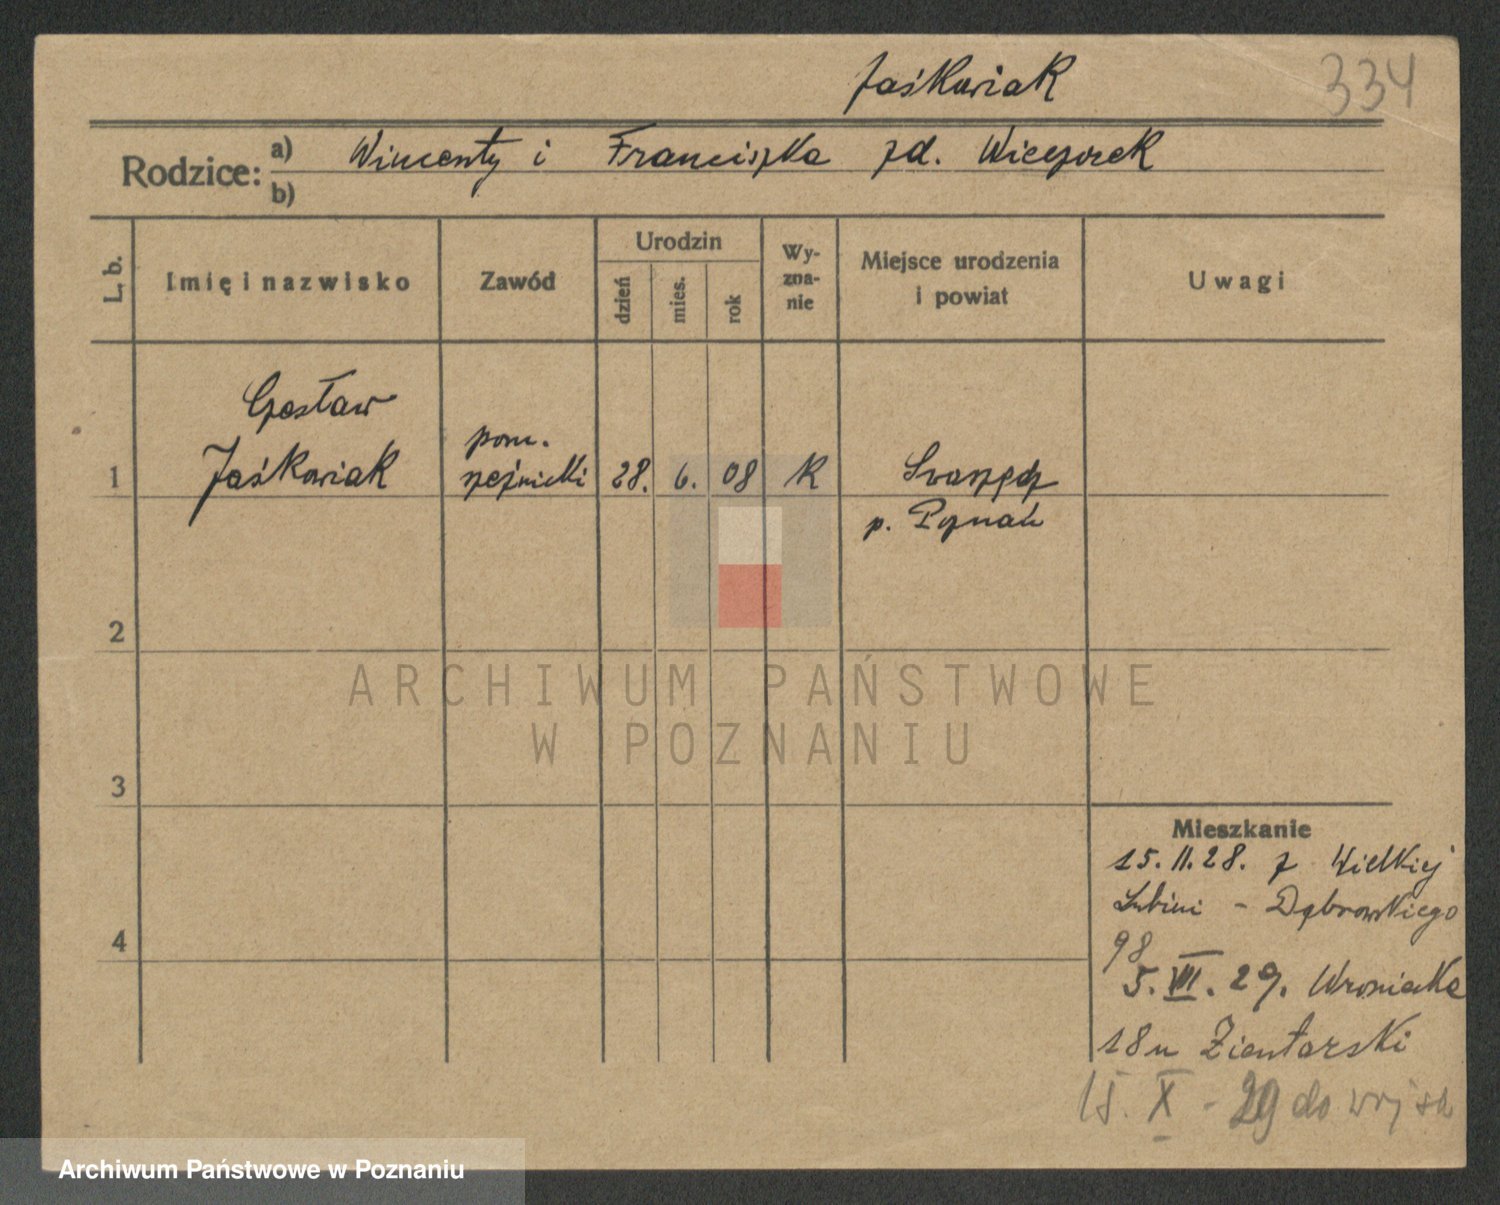 Jaśkowiak
334
Rodzice: a) Wincenty i Franciszka zd. Wieczorek
b)
L. b.
Imię i nazwisko
Zawód
Urodzin
dzień
mies.
rok
Wy-
zna-
nie
Miejsce urodzenia
i powiat
Uwagi
Czesław
Jaśkowiak
pom.
rzeźnicki
28. 6. 08 K
Swarzędz
p. Poznań
1
2
3
4
Mieszkanie
15. II. 28. z Wielkiej
Lubini - Dąbrowskiego
98
5. VII. 29. Wroniecka
18 u Zientarski
15. X - 29 do wojska
ARCHIWUM PAŃSTWOWE
W POZNANIU
Archiwum Państwowe w Poznaniu